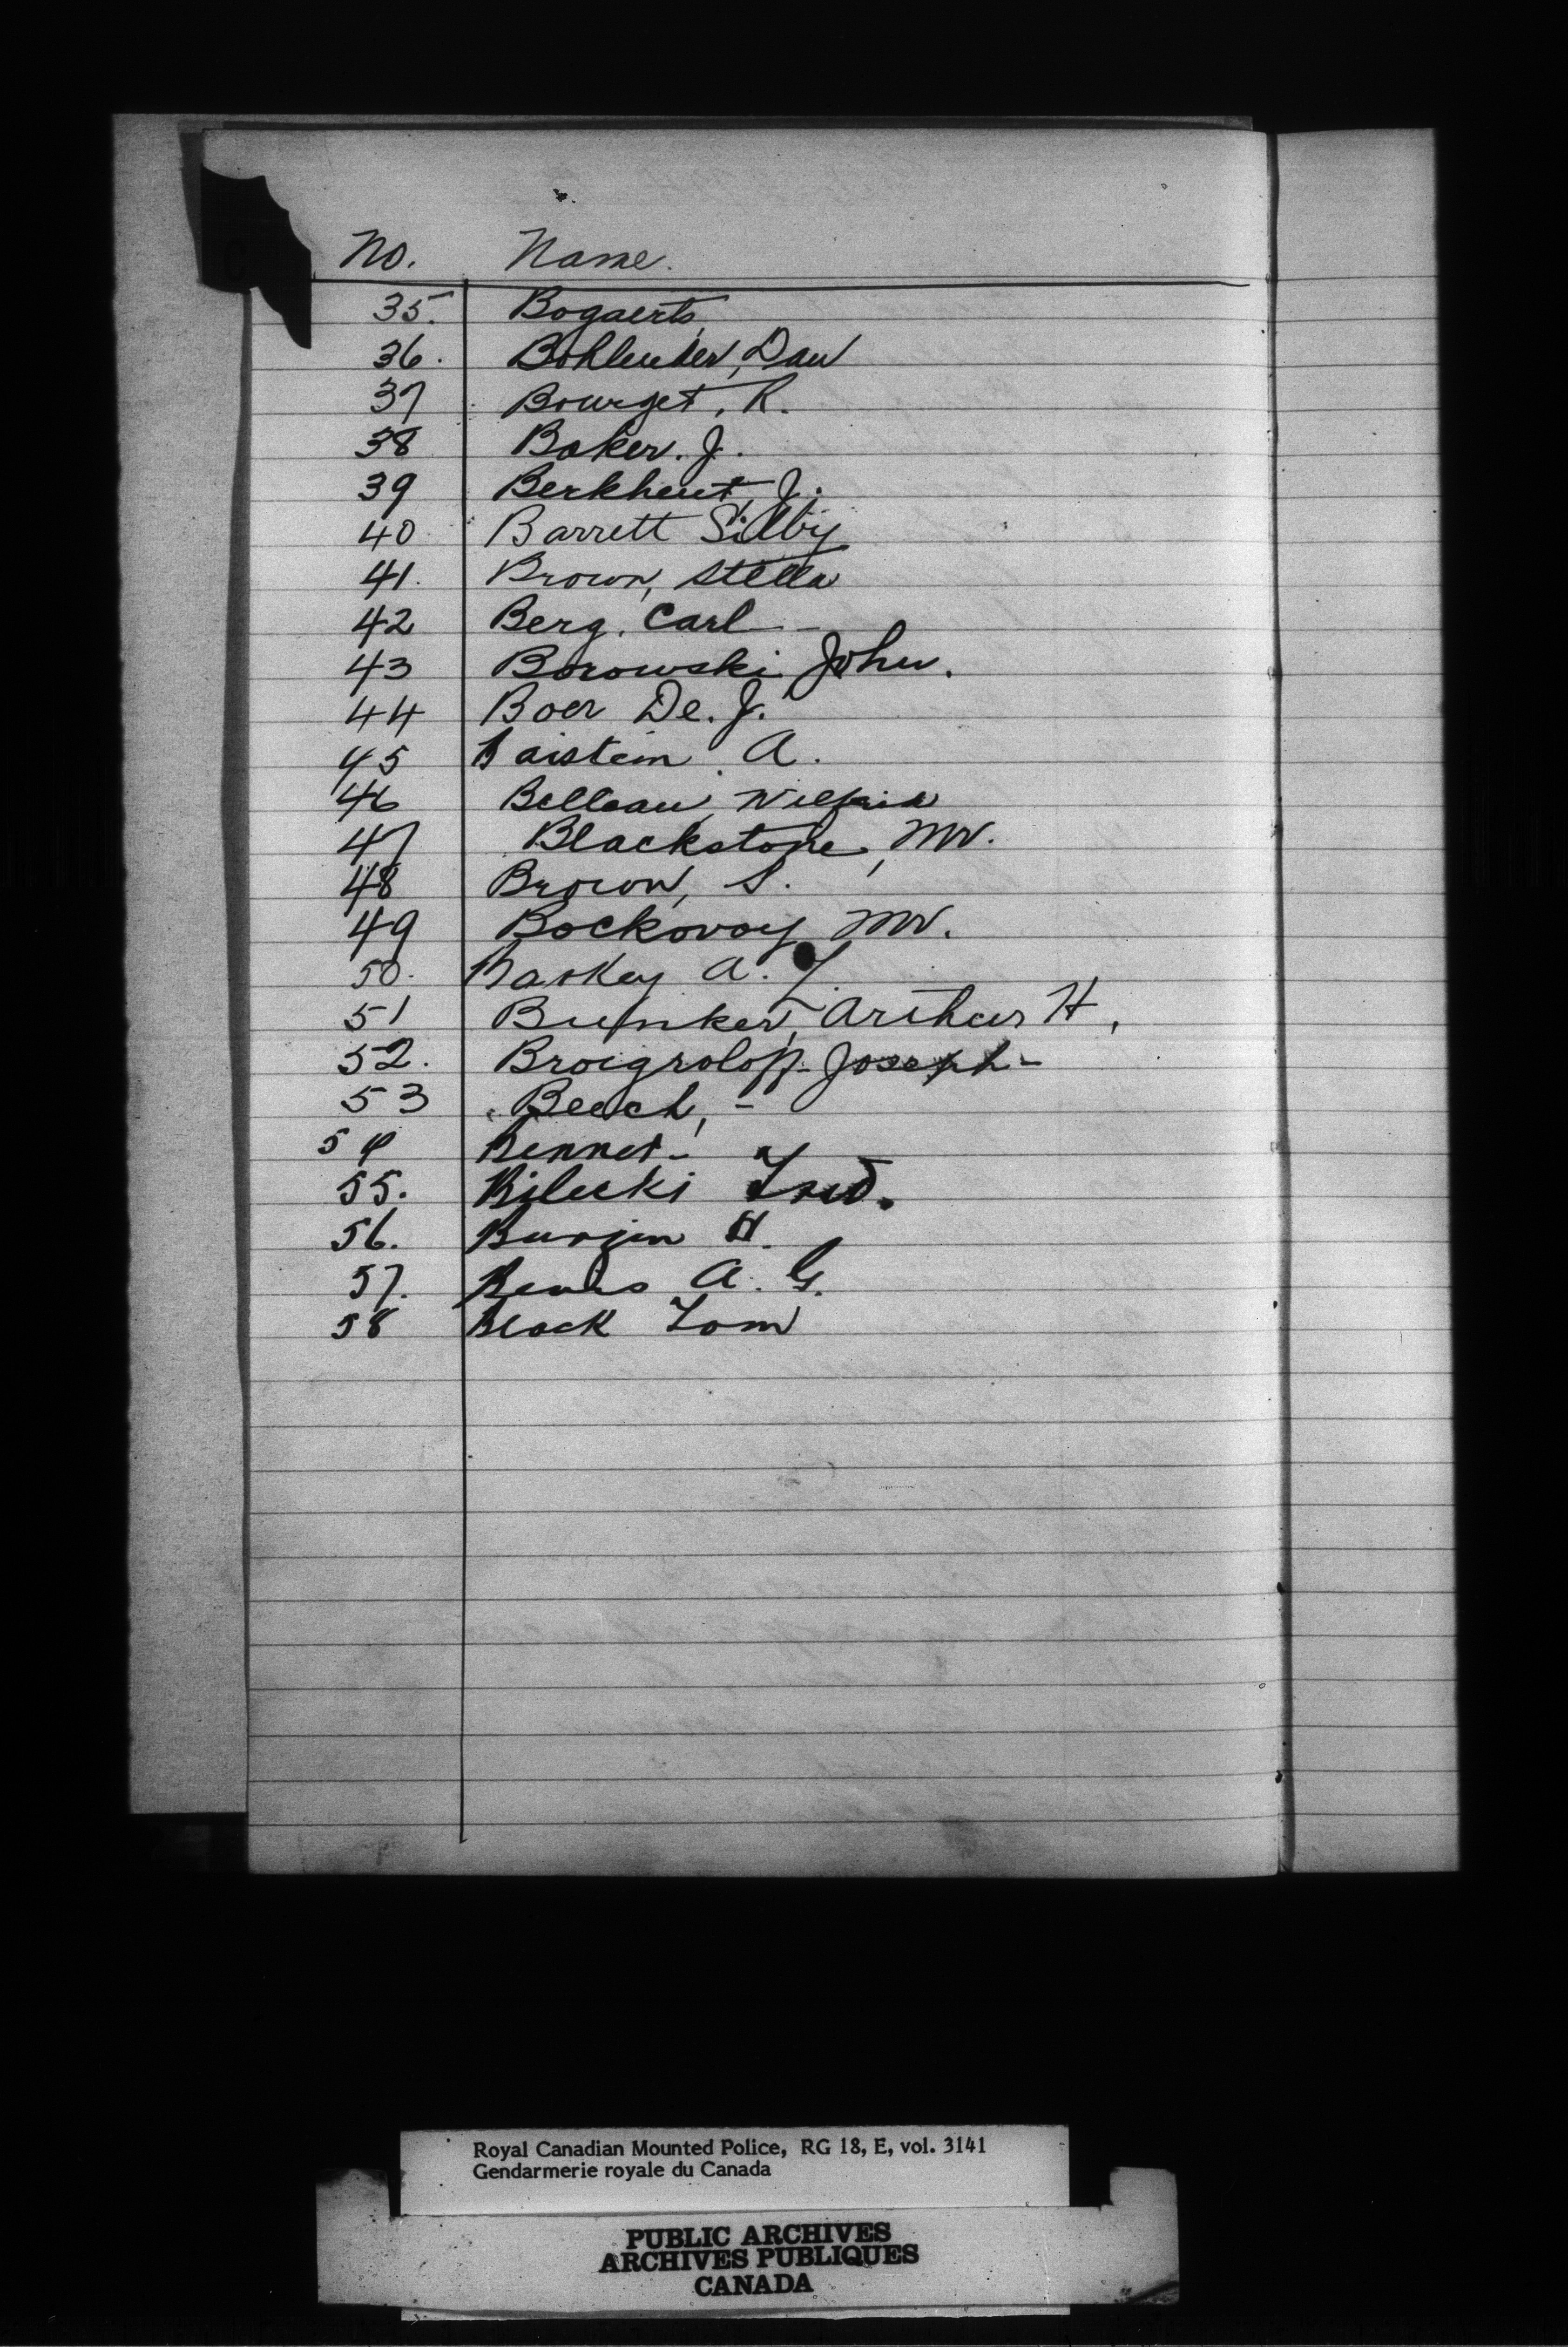 No. Name.
35. Bogaerts,
36. Bohlender, Dan
37 Bourget, R.
38 Baker. J.
39 Berkheut, J.
40 Barrett Silby
41. Brown, Stella
42 Berg. Carl -
43 Borowski John.
44 Boer De. J.
45 Baistein. A.
46 Belleau, Wilfrid
47 Blackstone, Mr.
48 Brown, S.
49 Bockovoy Mr.
50. A.
51 Bunker, Arthur H,
52. Joseph -
53 Beech, -
54 Bennet -
55. Bilecki Fred.
56. H.
57. A. G.
58 Black Tom
Royal Canadian Mounted Police, RG 18, E, vol. 3141
Gendarmerie royale du Canada
PUBLIC ARCHIVES
ARCHIVES PUBLIQUES
CANADA